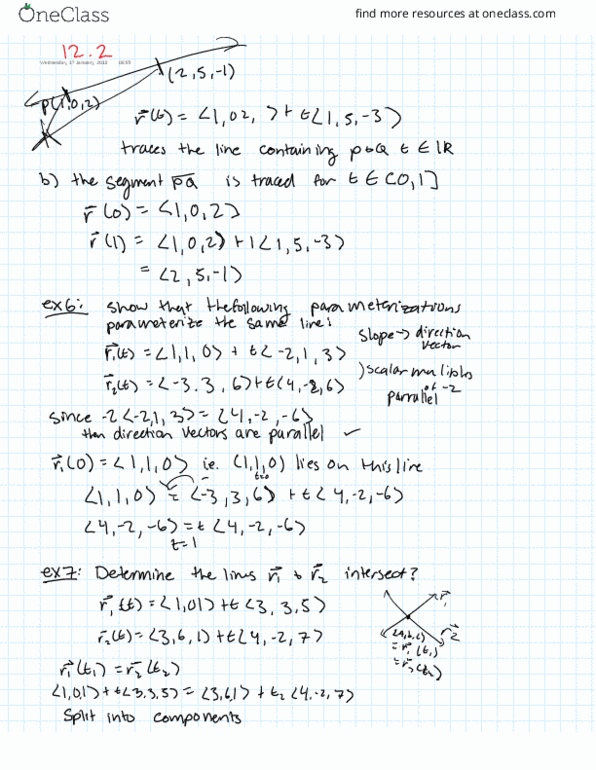 OneClass
find more resources at oneclass.com
12.2
Wednesday, 17 January, 2018
(2,5,-1)
P(1,0,2)
r⃗(t) = <1,02, > + t<1,5,-3>
traces the line containing p to Q t ∈ ℝ
b) the segment PQ is traced for t ∈ [0,1]
r⃗(0) = <1,0,2>
r⃗(1) = <1,0,2> + 1<1,5,-3>
= <2,5,-1>
ex6: show that the following parameterizations
parameterize the same line:
slope → direction
vector
r⃗₁(t) = <1,1,0> + t<-2,1,3>
r⃗₂(t) = <-3.3,6> + t<4,-2,6>
) scalar multiples
of -2
parralel
since -2<-2,1,3> = <4,-2,-6>
then direction vectors are parallel ✓
r⃗₁(0) = <1,1,0> i.e. (1,1,0) lies on this line
t=0
<1,1,0> = <-3,3,6> + t<4,-2,-6>
<4,-2,-6> = t<4,-2,-6>
t=1
ex7: Determine the lines r⃗₁ & r⃗₂ intersect?
r⃗₁(t) = <1,01> + t<3,3,5>
r⃗₂(t) = <3,6,1> + t<4,-2,7>
r⃗₁
r⃗₂
(a,b,c)
= r⃗₁(t₁)
= r⃗₂(t₂)
r⃗₁(t₁) = r⃗₂(t₂)
<1,0,1> + t<3.3,5> = <3,6,1> + t₂<4,-2,7>
Split into components